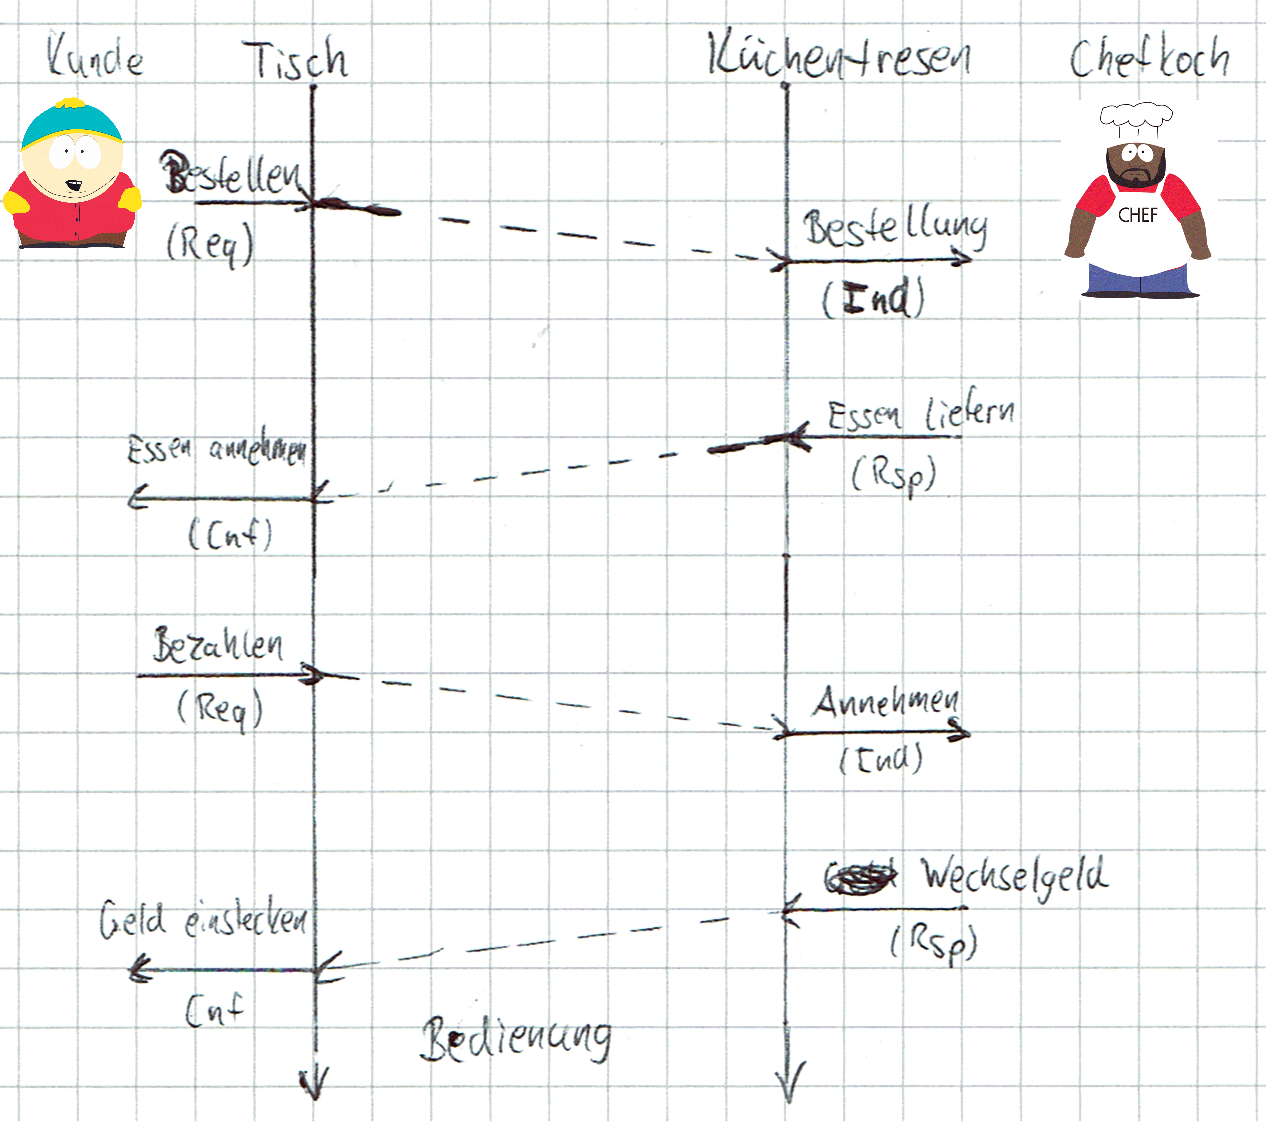 Kunde Tisch Küchentresen Chefkoch
Bestellen
(Req)
CHEF
Bestellung
(Ind)
Essen liefern
(Rsp)
Essen annehmen
(Cnf)
Bezahlen
(Req)
Annehmen
(Ind)
Wechselgeld
(Rsp)
Geld einstecken
Cnf
Bedienung